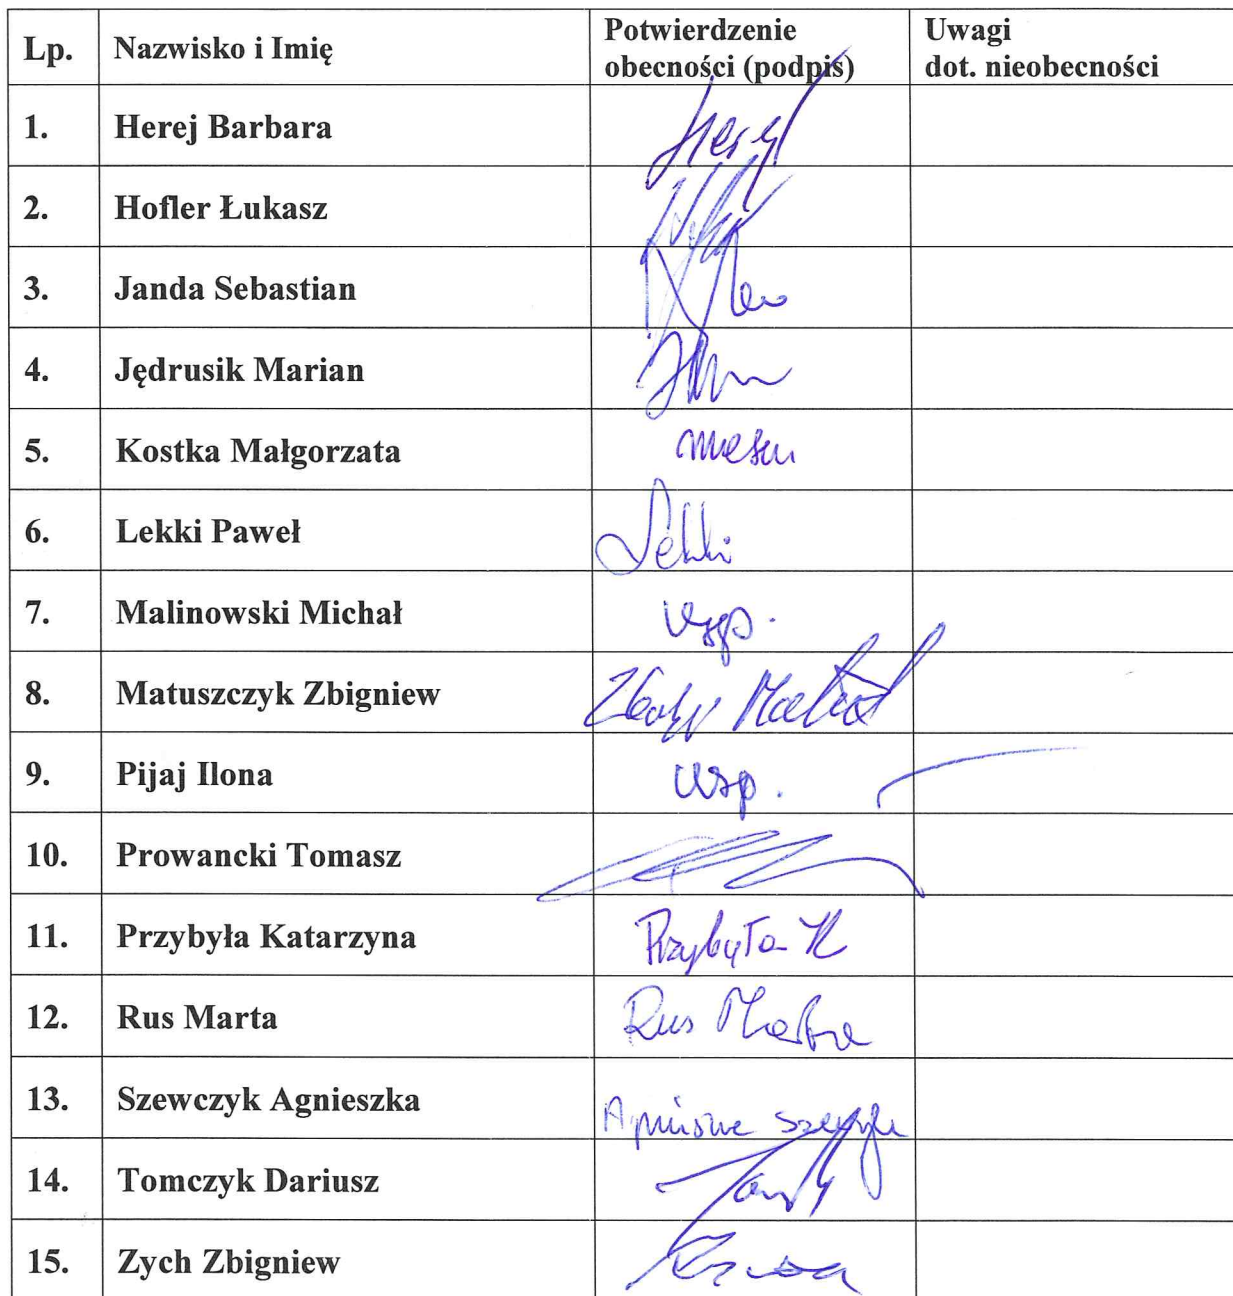 Lp. Nazwisko i Imię Potwierdzenie obecności (podpis) Uwagi dot. nieobecności
1. Herej Barbara
2. Hofler Łukasz
3. Janda Sebastian
4. Jędrusik Marian
5. Kostka Małgorzata
6. Lekki Paweł Lekki
7. Malinowski Michał usp.
8. Matuszczyk Zbigniew
9. Pijaj Ilona usp.
10. Prowancki Tomasz
11. Przybyła Katarzyna Przybyła K
12. Rus Marta Rus Marta
13. Szewczyk Agnieszka
14. Tomczyk Dariusz
15. Zych Zbigniew